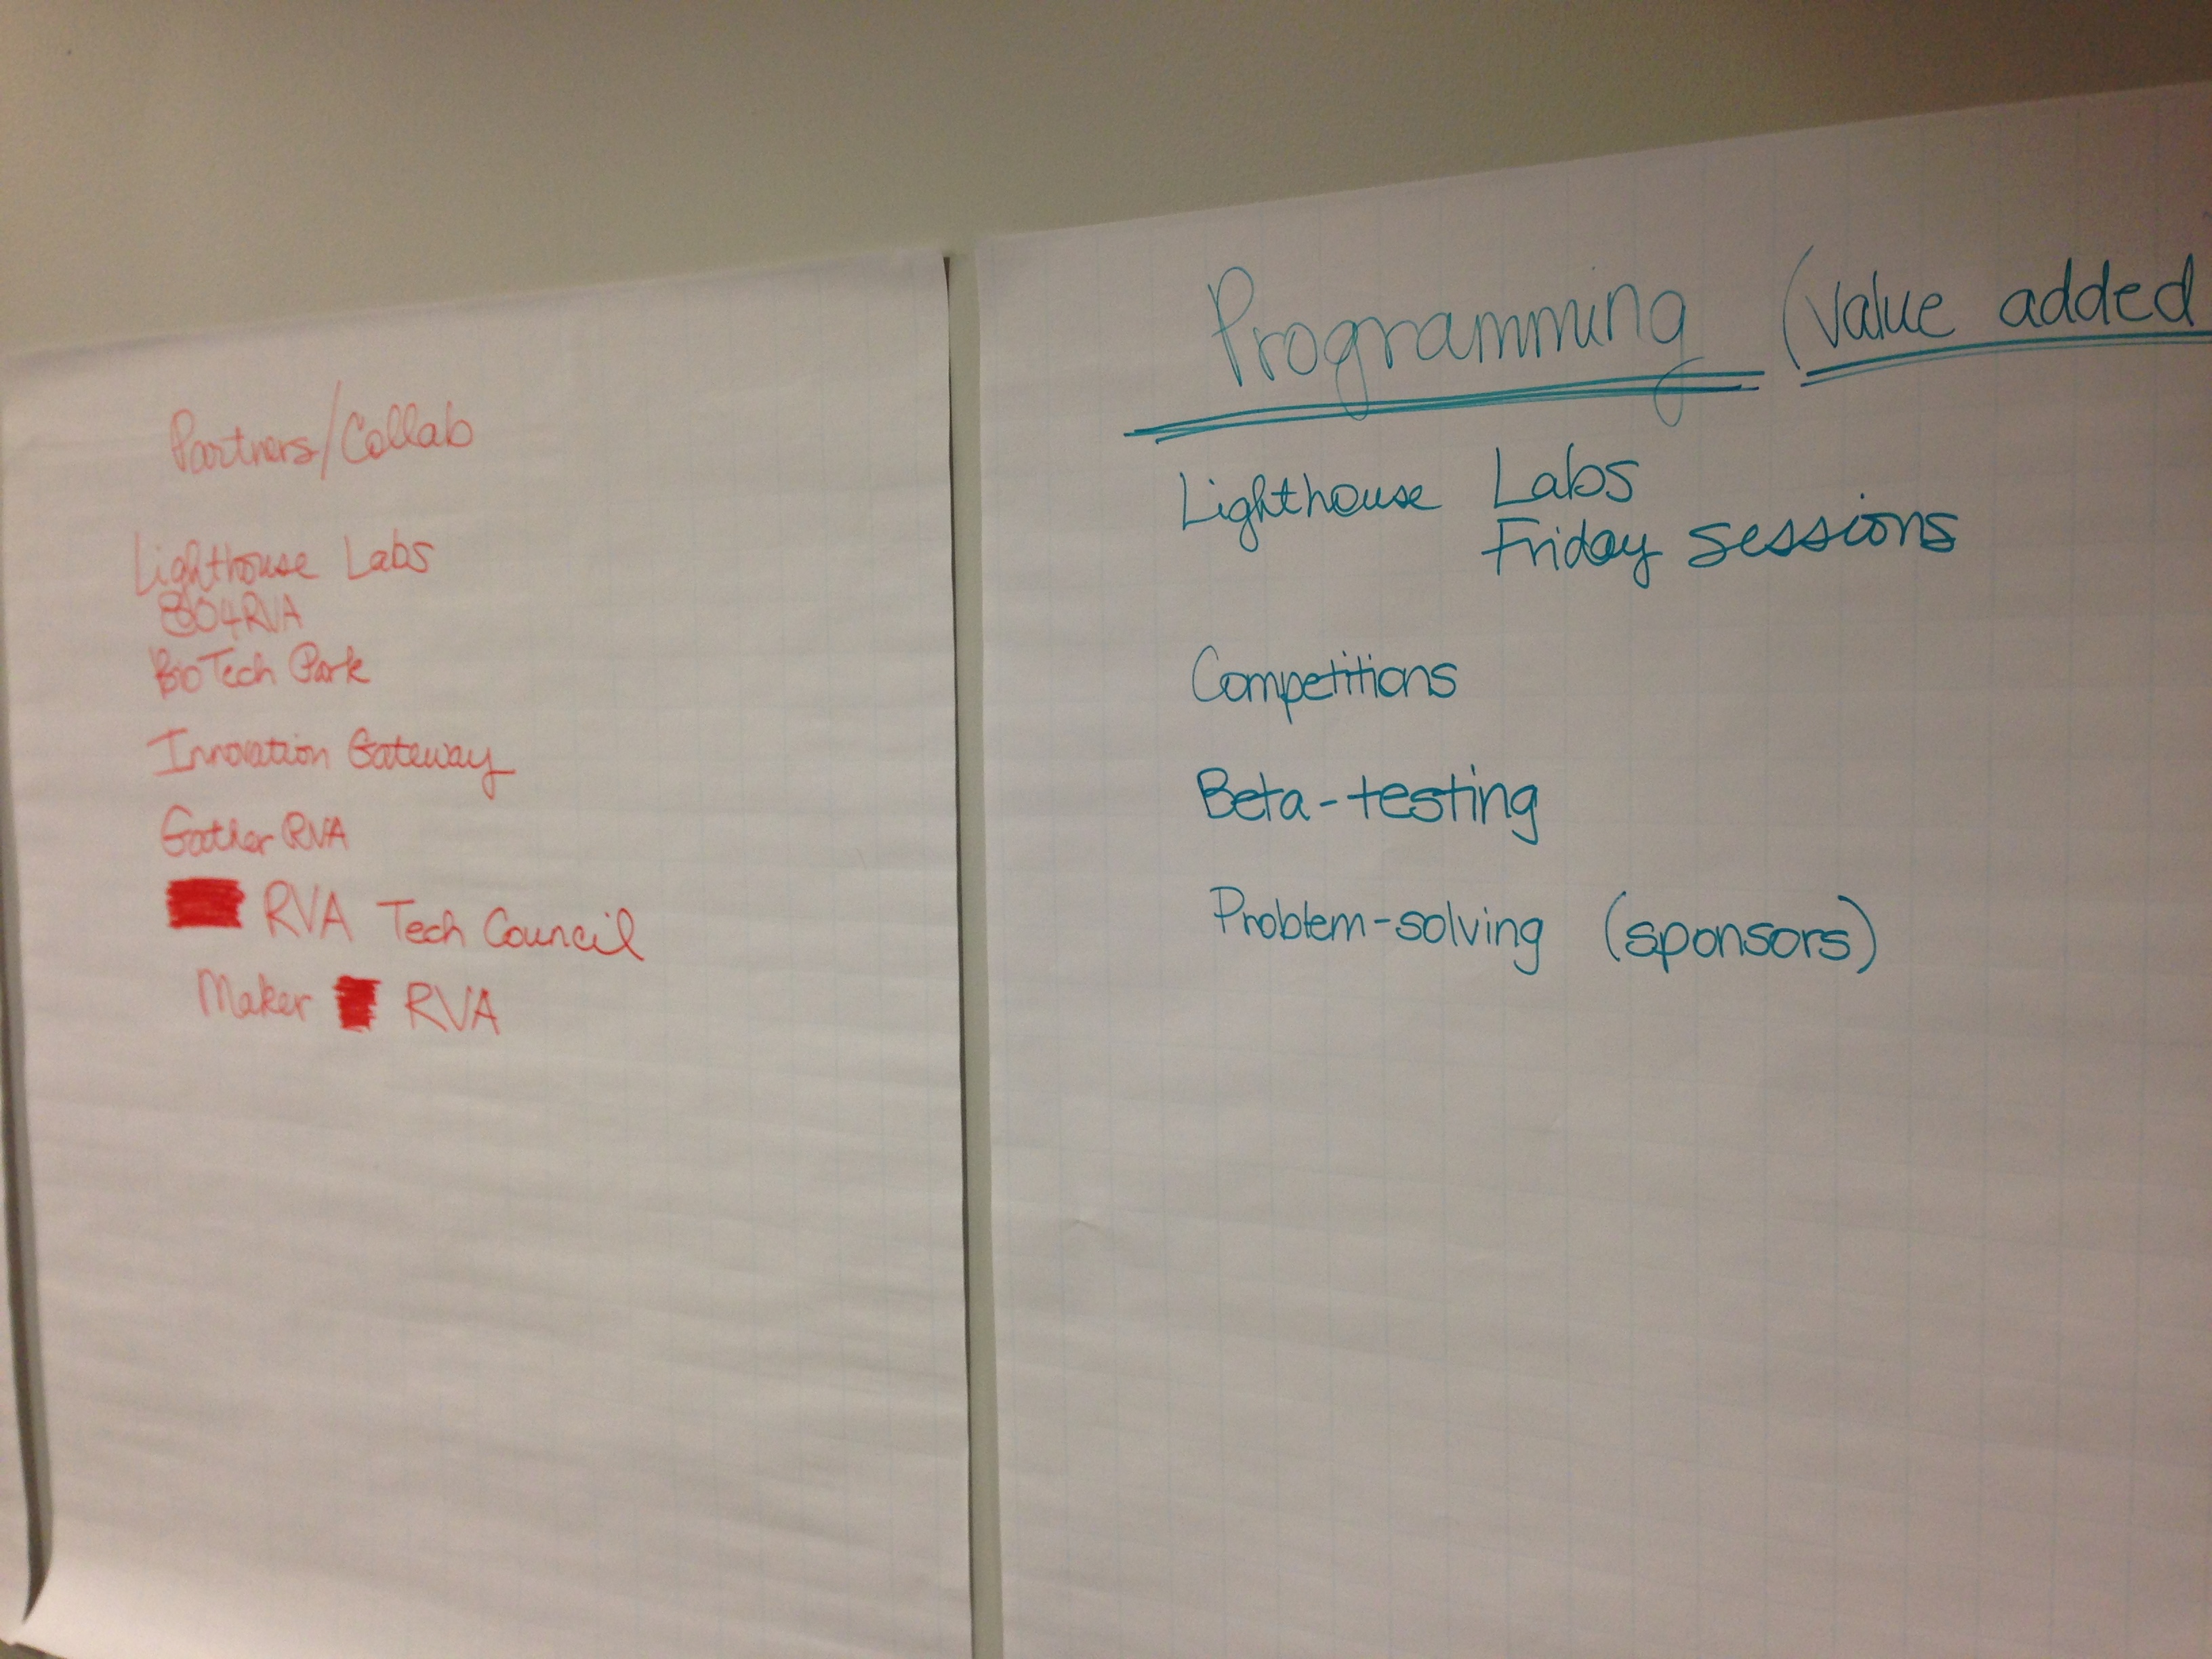 Partners/Collab
Lighthouse Labs
804RVA
BioTech Park
Innovation Gateway
Gather RVA
RVA Tech Council
Maker RVA
Programming (value added
Lighthouse Labs
Friday sessions
Competitions
Beta-testing
Problem-solving (sponsors)